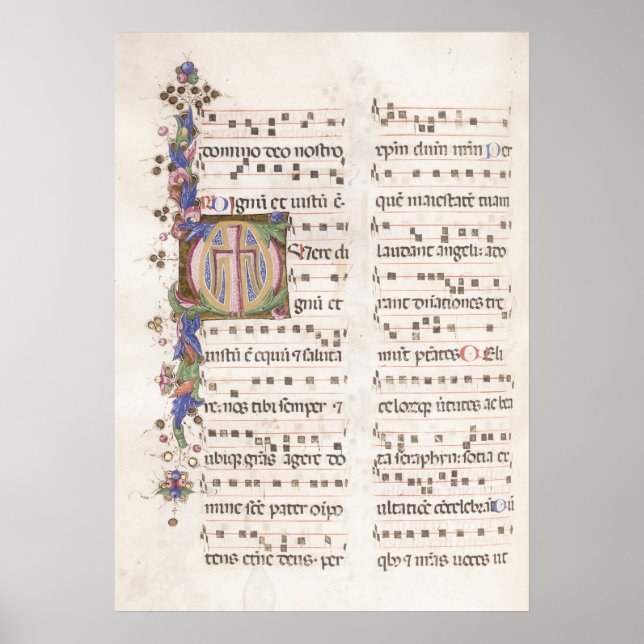 domino deo nostro
Dignū et iustū ē-
Vere di
gnū et
iustū ē equū ⁊ saluta
re: nos tibi semper ⁊
ubiqȝ grās agere do
mine scē pater oīpo
tens etne deus. per
xp̄m dn̄m nr̄m Per
quē maiestatē tuam
laudant angeli: ado
rant dn̄ationes tre
mūt ptātes Celi
celorqȝ ūtutes ac bea
ta seraphyn: sotia ex
ultatiōe cōcelebrāt Cū
qbȝ ⁊ nr̄as uoces ut